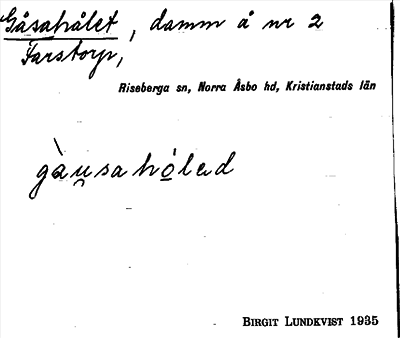 Gåsahålet, damm å nr 2
Farstorp,
Riseberga sn, Norra Åsbo hd, Kristianstads län
gàu̯sahó̱lad
BIRGIT LUNDKVIST 1935